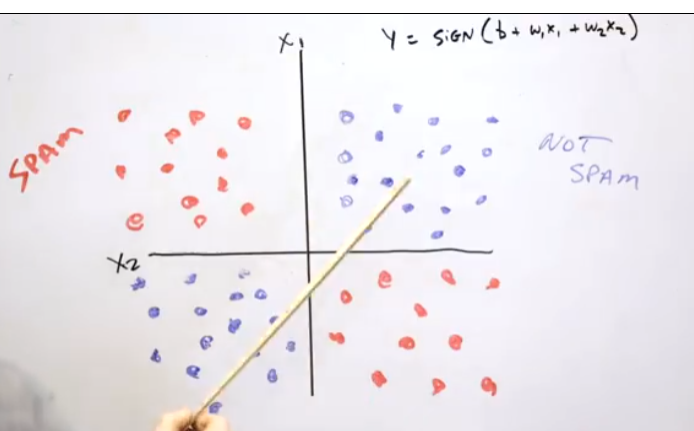 X1
Y = SIGN (b + w1x1 + w2x2)
SPAM
NOT
SPAM
X2